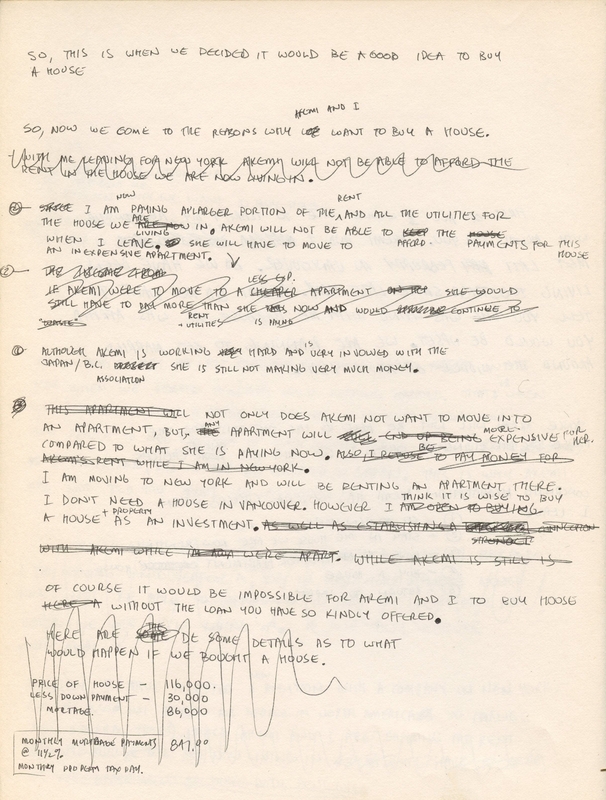 SO, THIS IS WHEN WE DECIDED IT WOULD BE A GOOD IDEA TO BUY
A HOUSE
AKEMI AND I
SO, NOW WE COME TO THE REASONS WHY WE WANT TO BUY A HOUSE.
WITH ME LEAVING FOR NEW YORK AKEMI WILL NOT BE ABLE TO AFFORD THE
RENT IN THE HOUSE WE ARE NOW LIVING IN.
NOW RENT
I AM PAYING A LARGER PORTION OF THE AND ALL THE UTILITIES FOR
ARE
THE HOUSE WE ARE NOW IN. AKEMI WILL NOT BE ABLE TO KEEP THE HOUSE
LIVING AFFORD PAYMENTS FOR THIS
WHEN I LEAVE. SHE WILL HAVE TO MOVE TO HOUSE
AN INEXPENSIVE APARTMENT.
THE INCOME FROM
LESS EXP.
IF AKEMI WERE TO MOVE TO A CHEAPER APARTMENT SHE WOULD
STILL HAVE TO PAY MORE THAN SHE NOW AND WOULD CONTINUE TO
RENT
+ UTILITIES IS PAYING
IS
ALTHOUGH AKEMI IS WORKING VERY HARD AND VERY INVOLVED WITH THE
JAPAN/B.C. SHE IS STILL NOT MAKING VERY MUCH MONEY.
ASSOCIATION
THIS APARTMENT WILL NOT ONLY DOES AKEMI NOT WANT TO MOVE INTO
ANY MORE
AN APARTMENT, BUT, THE APARTMENT WILL END UP BEING EXPENSIVE FOR
BE HER.
COMPARED TO WHAT SHE IS PAYING NOW. ALSO, I REFUSE TO PAY MONEY FOR
AKEMI'S RENT WHILE I AM IN NEW YORK.
I AM MOVING TO NEW YORK AND WILL BE RENTING AN APARTMENT THERE.
THINK IT IS WISE TO BUY
I DON'T NEED A HOUSE IN VANCOUVER. HOWEVER I AM OPEN TO BUYING
+ PROPERTY
A HOUSE AS AN INVESTMENT. AS WELL AS ESTABLISHING A CONNECTION
STRONGER
WITH AKEMI WHILE WERE APART. WHILE AKEMI IS STILL IS
OF COURSE IT WOULD BE IMPOSSIBLE FOR AKEMI AND I TO BUY HOUSE
HERE A WITHOUT THE LOAN YOU HAVE SO KINDLY OFFERED.
THE
HERE ARE SOME DE SOME DETAILS AS TO WHAT
WOULD HAPPEN IF WE BOUGHT A HOUSE.
PRICE OF HOUSE - 116,000.
LESS DOWN PAYMENT - 30,000
MORTAGE. 86,000
MONTHLY MORTGAGE PAYMENTS 847.00
@ 11½%
MONTHLY PROPERTY TAX